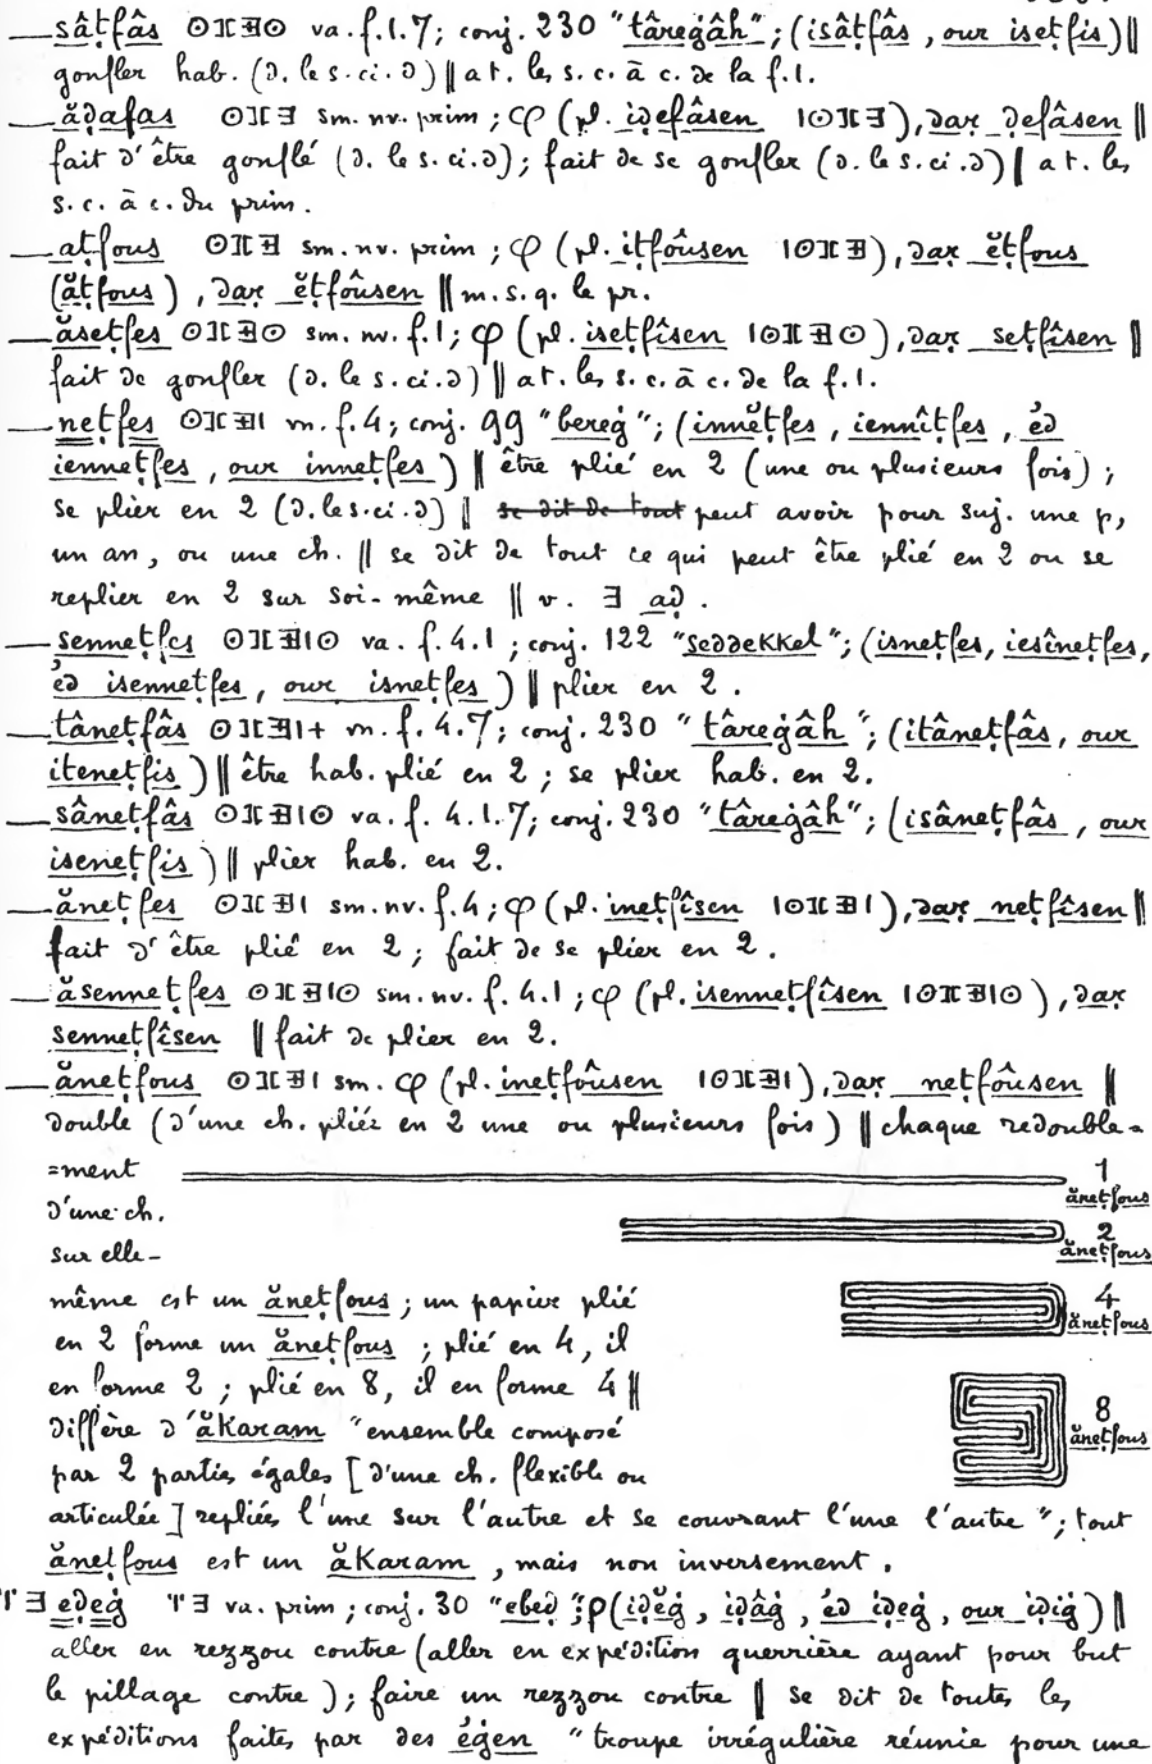 — sâṭfâs ⵙⵊⵎⴺⵙ va. f. 1.7; conj. 230 "târeġâh"; (isâṭfâs, our iseṭfis) ||
gonfler hab. (d. le s. ci. d) || a t. les s. c. à c. de la f. 1.
— ăḍafas sm. nv. prim; φ (pl. iḍefâsen), daṛ ḍefâsen ||
fait d'être gonflé (d. le s. ci. d); fait de se gonfler (d. le s. ci. d) || a t. les
s. c. à c. du prim.
— aṭfous sm. nv. prim; φ (pl. iṭfoûsen), daṛ ĕṭfous
(ăṭfous), daṛ ĕṭfoûsen || m. s. q. le pr.
— ăseṭfes sm. nv. f. 1; φ (pl. iseṭfîsen), daṛ seṭfîsen ||
fait de gonfler (d. le s. ci. d) || a t. les s. c. à c. de la f. 1.
— neṭfes vn. f. 4; conj. 99 "bereġ"; (innĕṭfes, iennîṭfes, éd
ienneṭfes, our inneṭfes) || être plié en 2 (une ou plusieurs fois);
se plier en 2 (d. le s. ci. d) || se dit de tout peut avoir pour suj. une p,
un an, ou une ch. || se dit de tout ce qui peut être plié en 2 ou se
replier en 2 sur soi-même || v. ⴺ aḍ.
— senneṭfes va. f. 4.1; conj. 122 "seddekkel"; (isneṭfes, iesîneṭfes,
éd isenneṭfes, our isneṭfes) || plier en 2.
— tâneṭfâs vn. f. 4.7; conj. 230 "târeġâh"; (itâneṭfâs, our
iteneṭfis) || être hab. plié en 2; se plier hab. en 2.
— sâneṭfâs va. f. 4.1.7; conj. 230 "târeġâh"; (isâneṭfâs, our
iseneṭfis) || plier hab. en 2.
— ăneṭfes sm. nv. f. 4; φ (pl. ineṭfîsen), daṛ neṭfîsen ||
fait d'être plié en 2; fait de se plier en 2.
— ăsenneṭfes sm. nv. f. 4.1; φ (pl. isenneṭfîsen), daṛ
senneṭfîsen || fait de plier en 2.
— ăneṭfous sm. φ (pl. ineṭfoûsen), daṛ neṭfoûsen ||
double (d'une ch. pliée en 2 une ou plusieurs fois) || chaque redouble=
=ment
1
ăneṭfous
d'une ch.
2
ăneṭfous
sur elle-
même est un ăneṭfous; un papier plié
4
ăneṭfous
en 2 forme un ăneṭfous; plié en 4, il
en forme 2; plié en 8, il en forme 4 ||
8
ăneṭfous
diffère d'ăkaram "ensemble composé
par 2 parties égales [d'une ch. flexible ou
articulée] repliées l'une sur l'autre et se couvrant l'une l'autre"; tout
ăneṭfous est un ăkaram, mais non inversement.
eḍeġ va. prim; conj. 30 "ebed"; ρ (iḍĕġ, iḍâġ, éd iḍeġ, our iḍiġ) ||
aller en rezzou contre (aller en expédition guerrière ayant pour but
le pillage contre); faire un rezzou contre || se dit de toutes les
expéditions faites par des égen "troupe irrégulière réunie pour une